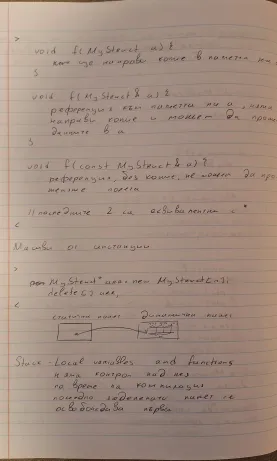 >
void f(MyStruct a){
ще направи копие в паметта на
}
void f(MyStruct& a){
референция към паметта на a, няма
направи копие и може да проме
данните в a
}
void f(const MyStruct& a){
референция, без копие, не може да про
// последните 2 са еквивалентни с *
<
Масиви от инстанции
>
MyStruct* = new MyStruct[n];
delete[]
<
статична памет динамична памет
Stack - Local variables and functions
контрол над нея
по време на компилация
последно заделената памет се
освобождава първа